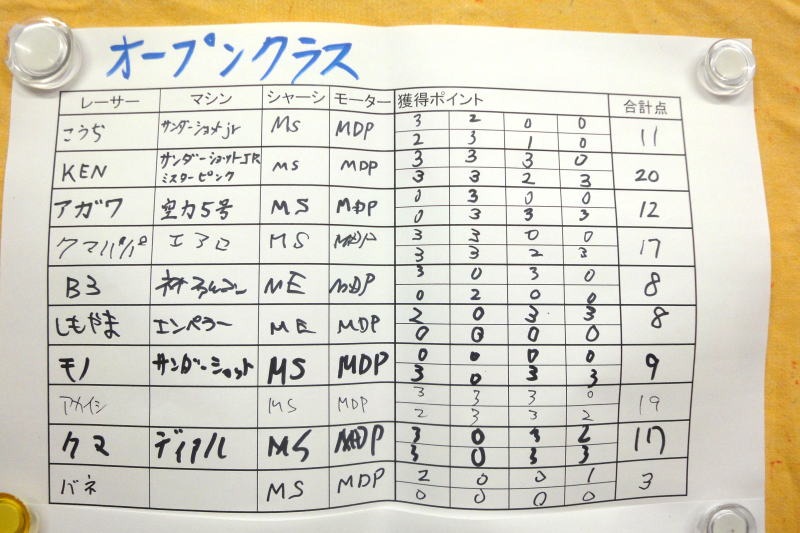 オープンクラス
レーサー マシン シャーシ モーター 獲得ポイント 合計点
こうぢ サンダーショットjr MS MDP 3 2 0 0 11
2 3 1 0
KEN サンダーショットJR MS MDP 3 3 3 0 20
ミスターピンク 3 3 2 3
アガワ 空力5号 MS MDP 0 3 0 0 12
0 3 3 3
クマパパ エアロ MS MDP 3 3 0 0 17
3 3 2 3
B3 ME MDP 3 0 3 0 8
0 2 0 0
しもやま エンペラー ME MDP 2 0 3 3 8
0 0 0 0
モノ サンダーショット MS MDP 0 0 0 0 9
3 0 3 3
アカイシ MS MDP 3 3 3 0 19
2 3 3 2
クマ MS MDP 3 0 3 2 17
3 0 3 3
バネ MS MDP 2 0 0 1 3
0 0 0 0